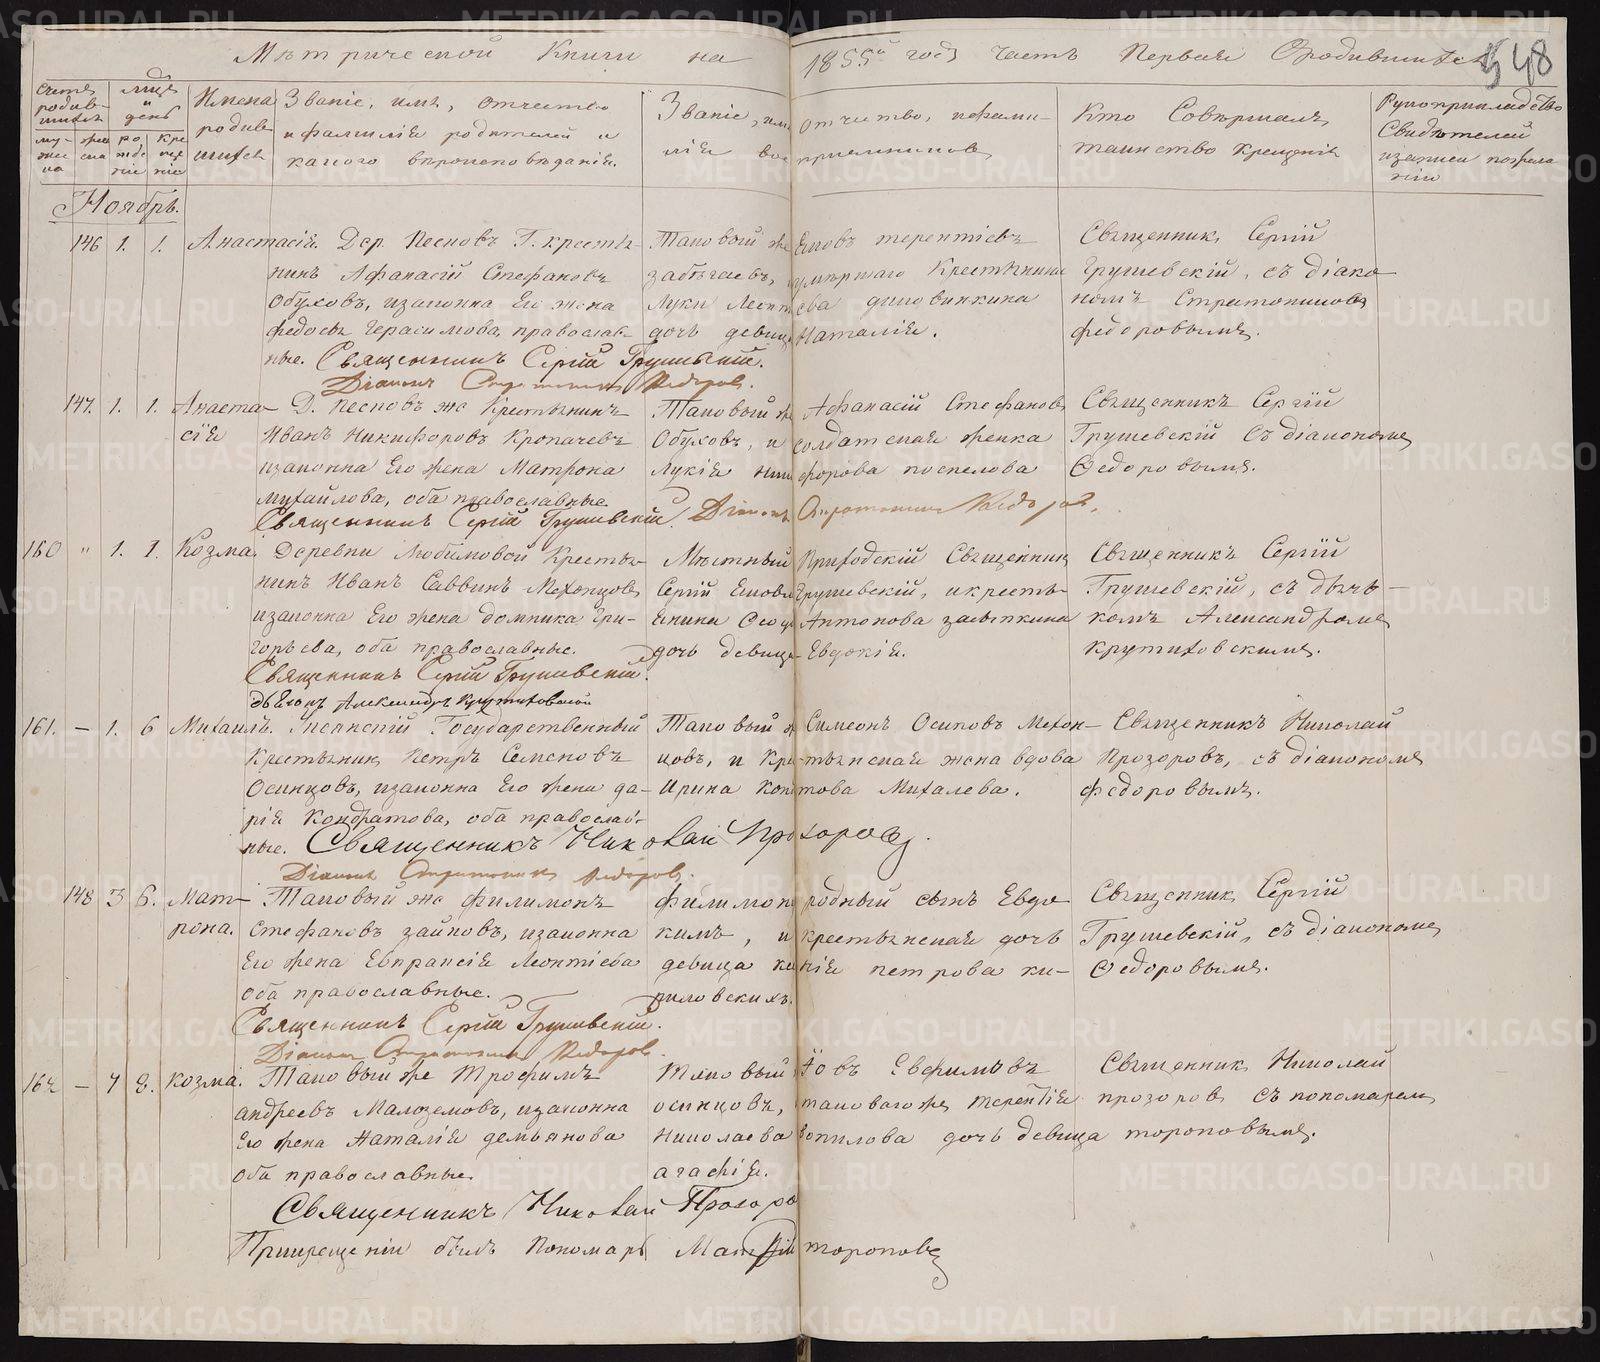 Метрической Книги на 1855й годъ часть Первая О родившихся
548
Счетъ родив-шихся
мѣсяц и день
Имена родив-шихся
Званіе, имя, отчество и фамилія родителей и какого вѣроисповѣданія.
Званіе, имя отчество, и фами-лія воспріемниковъ
Кто Совершалъ таинство Крещенія
Рукоприкладство Свидѣтелей записи по желанію
му-жеска
женска
ро-жде-ніе
кре-ще-ніе
Ноябрь.
146 1. 1. Анастасія. Дер. Песковъ Г. крестья-
нинъ Афанасій Стефановъ
Обуховъ, изаконна его жена
федосья Герасимова, православ-
ные. Священникъ Сергій Грушевскій.
Діаконъ Стратоникъ Федоровъ.
Таковый же Емовъ терентіевъ
забѣгаевъ, и умершаго Крестьянина
Луки Леонтьева диковинкина
дочь девица Наталія.
Священникъ Сергій
Грушевскій, съ діако-
номъ Стратоникомъ
федоровымъ.
147. 1. 1. Анаста-
сія
Д. Песковъ же Крестьянинъ
Иванъ Никифоровъ Кропачевъ
изаконна Его жена Матрона
михайлова, оба православные.
Священникъ Сергій Грушевскій. Діаконъ Стратоникъ Федоровъ.
Таковый же Афанасій Стефановъ
Обуховъ, и солдатская женка
Лукія никифорова поспелова
Священникъ Сергій
Грушевскій съ діакономъ
Федоровымъ.
160 " 1. 1. Козма.
Деревни Любимовой Крестья-
нинъ Иванъ Саввинъ Мехонцовъ
изаконна Его жена домника Гри-
горьева, оба православные.
Священникъ Сергій Грушевскій.
дьячокъ Александръ Крутиховскій
Мѣстный Приходскій Священникъ
Сергій Грушевскій, и крестья-
Антонова засыпкина
дочь девица Евдокія.
Священникъ Сергій
Грушевскій, съ дьяч-
комъ Александромъ
крутиховскимъ.
161. — 1. 6 Михаилъ.
Государственный
Крестьянинъ Петръ Семеновъ
Осинцовъ, изаконна Его жена да-
рія Кондратова, оба православ-
ные. Священникъ Николай Прозоровъ.
Діаконъ Стратоникъ Федоровъ.
Таковый же Симеонъ Осиповъ Мехон-
цовъ, и Крестьянская жена вдова
Ирина Михалева.
Священникъ Николай
Прозоровъ, съ діакономъ
федоровымъ.
148 3 6. Мат-
рона.
Таковый же филимонъ
Стефановъ зайковъ, изаконна
Его жена Евпраксія Леонтіева
оба православные.
Священникъ Сергій Грушевскій.
Діаконъ Стратоникъ Федоровъ.
филимона родный сынъ Евдо-
кимъ, и крестьянская дочь
девица ксенія петрова ки-
риловскихъ.
Священникъ Сергій
Грушевскій, съ діакономъ
Федоровымъ.
162 — 7 8. Козма.
Таковый же Трофимъ
андреевъ Малоземовъ, изаконна
Его жена Наталія демьянова
оба православные.
Священникъ Николай Прозоровъ
При крещеніи былъ Пономарь Матѳій тороповъ
Таковый Іовъ Евфимовъ
осинцовъ, таковагоже терентія
Николаева вопилова дочь девица
агафія.
Священникъ Николай
прозоровъ съ пономаремъ
тороповымъ.